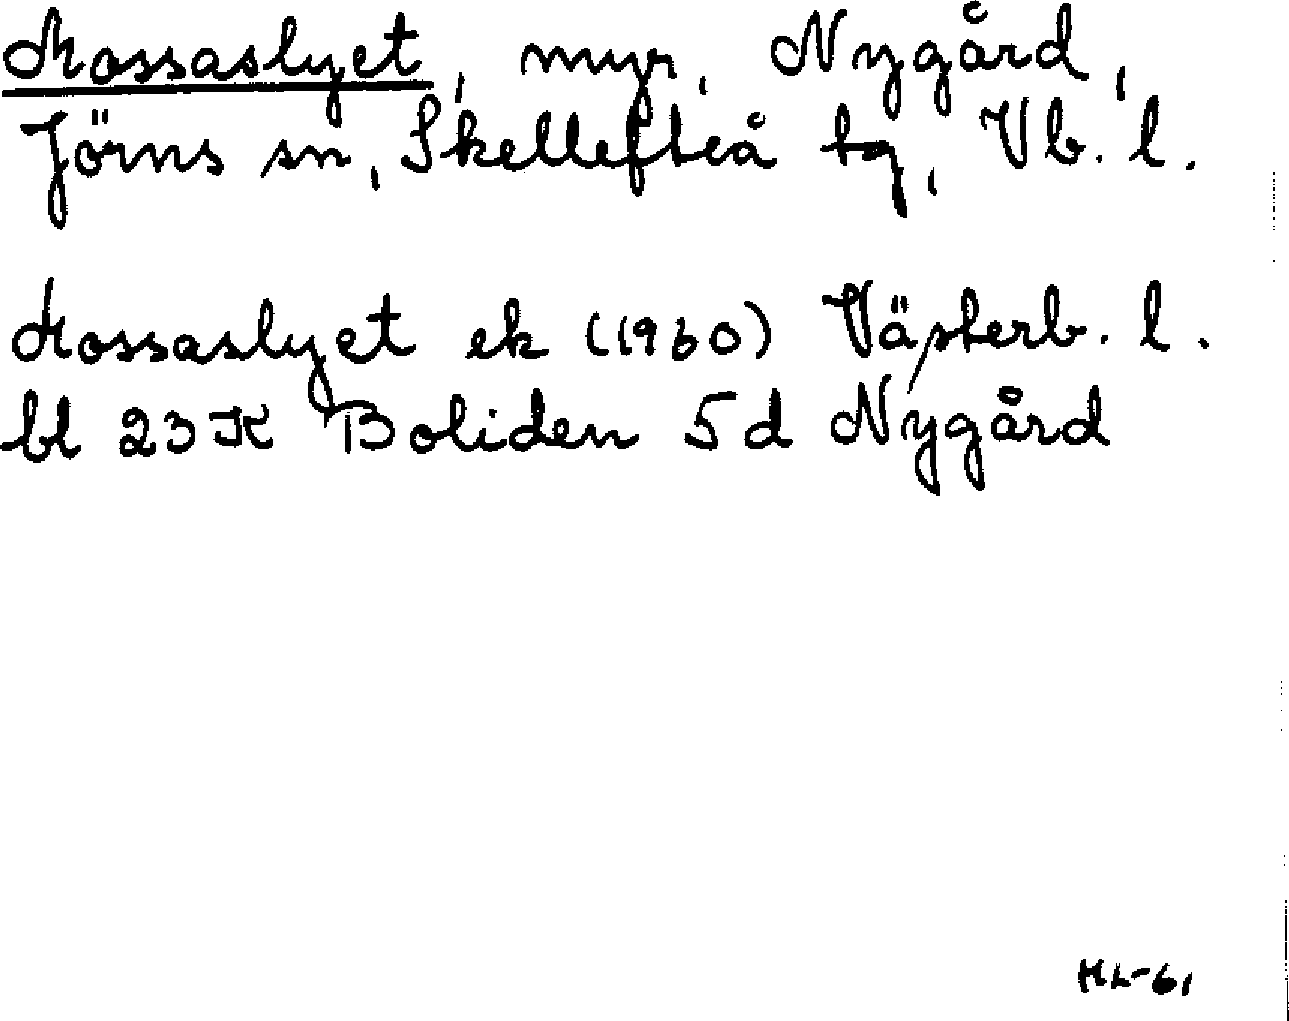 Mossaslyet, myr, Nygård,
Jörns sn, Skellefteå tg, Vb. l.
Mossaslyet ek (1960) Västerb. l.
bl 23 K Boliden 5d Nygård
HL-61